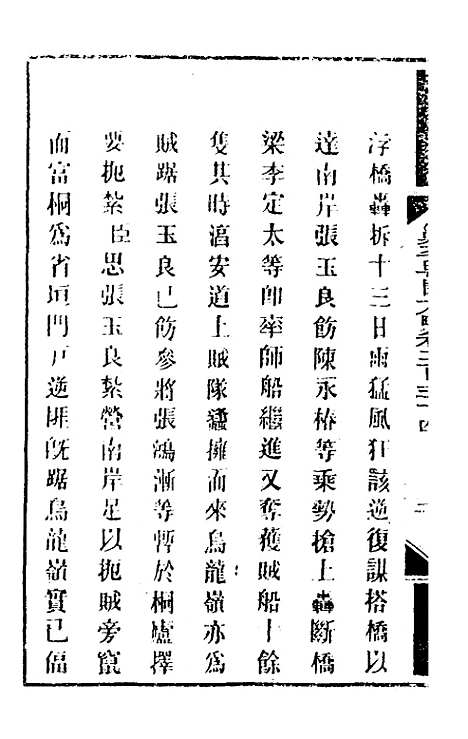 浮橋轟拆十三日雨猛風狂該逆復謀搭橋以
達南岸張玉良飭陳永椿等乘勢搶上轟斷橋
梁李定太等卽率師船繼進又奪獲賊船十餘
隻其時滀安道上賊隊蠭擁而來烏龍嶺亦爲
賊踞張玉良已飭參將張鴻漸等暫於桐廬擇
要扼紮臣思張玉良紮營南岸足以扼賊旁竄
而富桐爲省垣門戸逆匪旣踞烏龍嶺實已偪